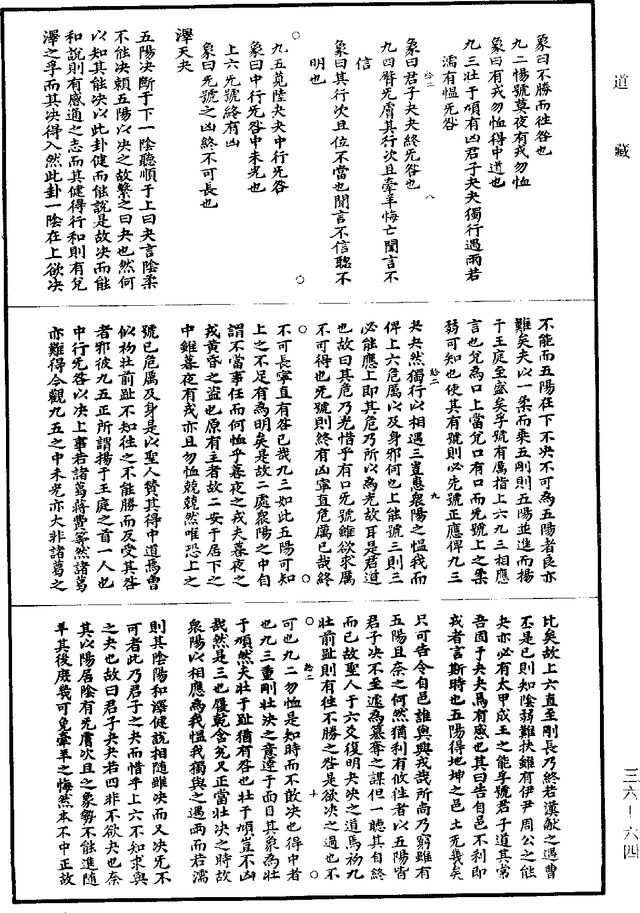 道藏
象曰不勝而往咎也
九二惕號莫夜有戎勿恤
象曰有戎勿恤得中道也
九三壯于頄有凶君子夬夬獨行遇雨若
濡有慍旡咎
象曰君子夬夬終旡咎也
九四臀旡膚其行次且牽羊悔亡聞言不
信
象曰其行次且位不當也聞言不信聰不
明也
九五莧陸夬夬中行旡咎
象曰中行旡咎中未光也
上六旡號終有凶
象曰旡號之凶終不可長也
澤天夬
五陽決斷于下一陰聽順于上曰夬言陰柔
不能決賴五陽以決之故繫之曰夬也然何
以知其能決以此卦健而能說是故決而能
和說則有感通之志而其健得行和則有兌
澤之孚而其決得入然此卦一陰在上欲決
不能而五陽在下不決不可為五陽者良亦
難矣夫以一柔而乘五剛則五陽並進而揚
于王庭至盛矣孚號有厲指上六九三相應
言也兌為口上當兌口有口而旡號上之柔
弱可知也使其有號則必先號正應俾九三
夬夬然獨行以相遇三豈惠衆陽之慍我而
俾上六危厲以及身邪何也上能號三則三
必能應上即其危乃所以為光故耳是君道
也故曰其危乃光惜乎有口旡號雖欲求厲
不可得也旡號則終有凶寧直危厲已哉終
不可長寧直有咎已哉九三如此五陽可知
上之不足有為明矣是故二處衆陽之中自
謂不當事任而何恤乎暮夜之戎夫暮夜之
戎黃昏之盜也原有主者故二安于居下之
中雖暮夜有戎亦且勿恤兢兢然唯恐上之
號已危厲及身是以聖人贊其得中道焉曾
似初壯前趾不知往之不能勝而及受其咎
者邪彼九五正所謂揚于王庭之首一人也
中行旡咎以決上事若諸葛蔣費等然諸葛
亦難得令觀九五之中未光亦大非諸葛之
比矣故上六直至剛長乃終若漢獻之遇曹
丕是已則知陰弱難扶雖有伊尹周公之能
夬亦必有太甲成王之能孚號君子道其常
吾固于夬夬焉有感也其曰告自邑不利即
戎者言斯時也五陽得地坤之邑土旡幾矣
只可告令自邑誰與興戎哉所尚乃窮雖有
五陽且奈之何然猶利有攸往者以五陽皆
君子決不至遽為篡奪之謀但一聽其自終
而已故聖人于六爻復明夬決之道焉初九
壯前趾則有往不勝之咎是欲決之過也不
可也九二勿恤是知時而不敢決也得中者
也九三重剛壯決之意達于面目其象為壯
于頄然夫壯于趾猶有咎也壯于頄豈不凶
哉然是三也履乾含兌又正當壯決之時故
衆陽以相應為我慍我獨與之遇雨而若濡
則其陰陽和澤健說相隨雖決而又決旡不
可者此乃君子之夬而惜乎上六不知求與
之夬也故曰君子夬夬若四非不欲夬也奈
其以陽居陰有旡膚次且之象勢不能進隨
羊其後庶幾可免牽羊之悔然本不中正故
三六—六四